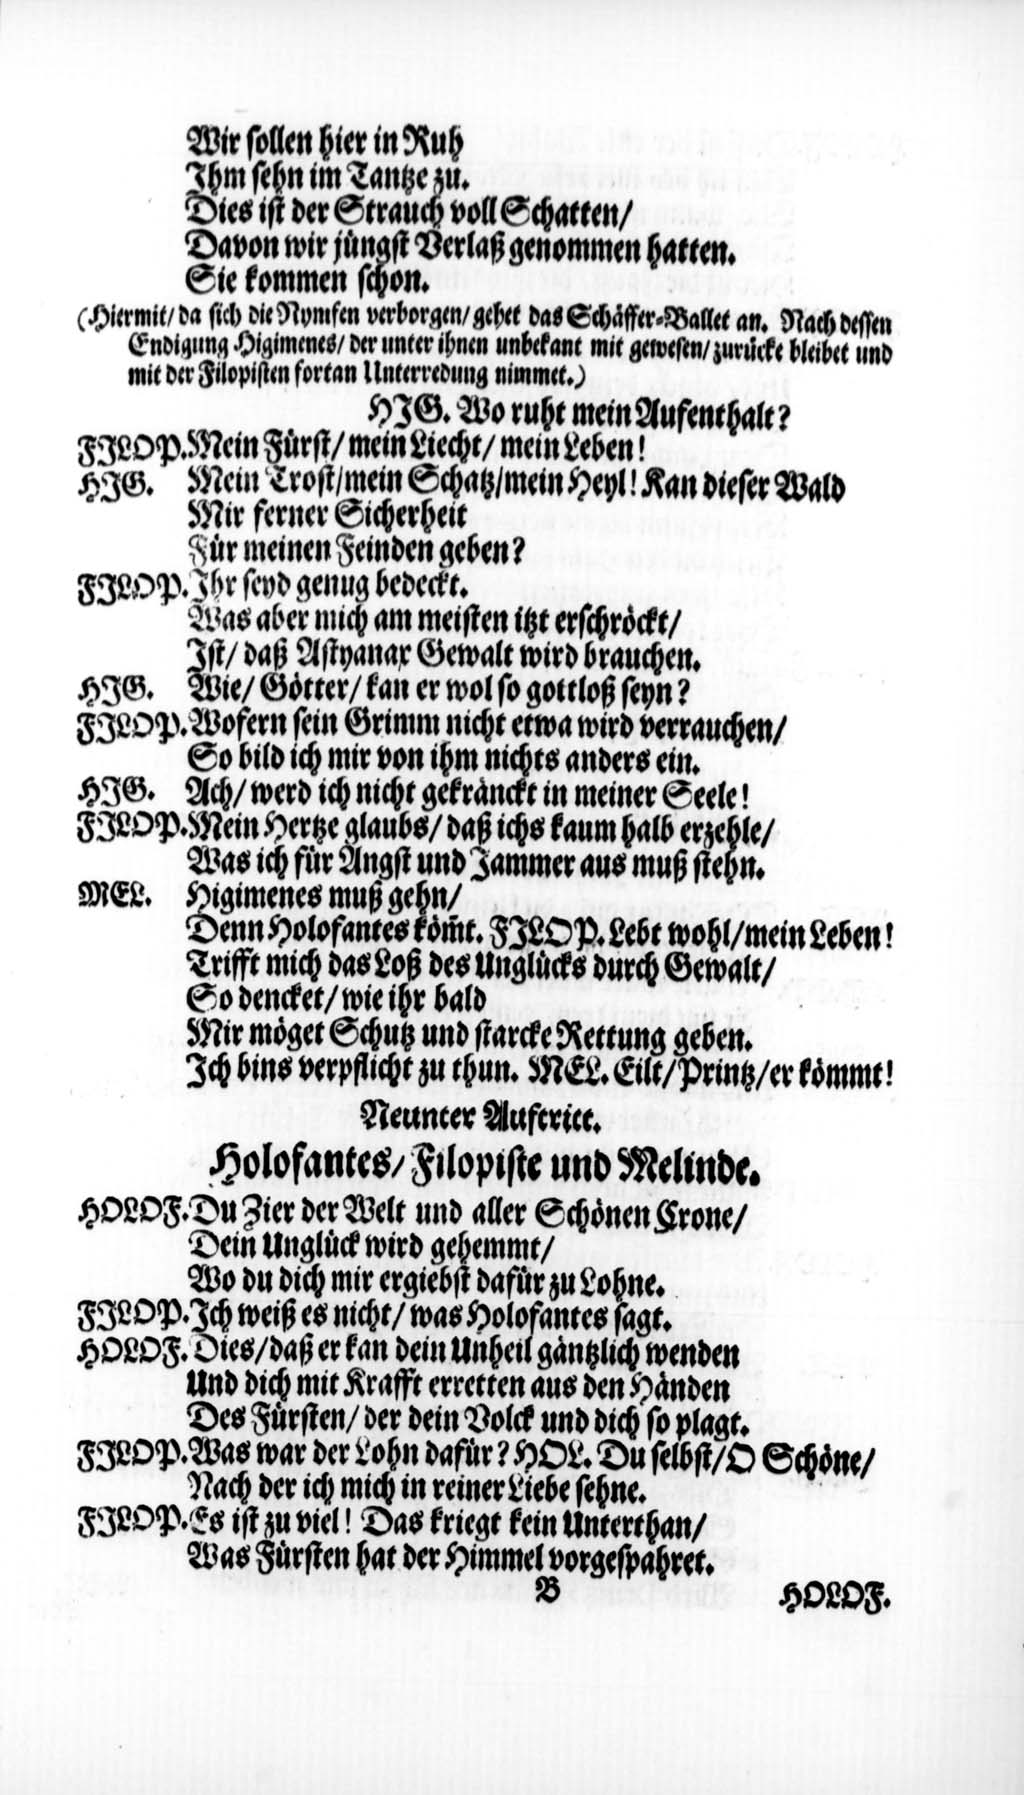 Wir sollen hier in Ruh
Ihm sehn im Tantze zu.
Dies ist der Strauch voll Schatten/
Davon wir jüngst Verlaß genommen hatten.
Sie kommen schon.
(Hiermit/ da sich die Nymfen verborgen/ gehet das Schäffer-Ballet an. Nach dessen
Endigung Higimenes/ der unter ihnen unbekant mit gewesen/ zurücke bleibet und
mit der Filopisten fortan Unterredung nimmet.)
HIG. Wo ruht mein Aufenthalt?
FILOP. Mein Fürst/ mein Liecht/ mein Leben!
HIG. Mein Trost/ mein Schatz/ mein Heyl! Kan dieser Wald
Mir ferner Sicherheit
Für meinen Feinden geben?
FILOP. Ihr seyd genug bedeckt.
Was aber mich am meisten itzt erschröckt/
Ist/ daß Astyanax Gewalt wird brauchen.
HIG. Wie/ Götter/ kan er wol so gottloß seyn?
FILOP. Wofern sein Grimm nicht etwa wird verrauchen/
So bild ich mir von ihm nichts anders ein.
HIG. Ach/ werd ich nicht gekränckt in meiner Seele!
FILOP. Mein Hertze glaubs/ daß ichs kaum halb erzehle/
Was ich für Angst und Jammer aus muß stehn.
MEL. Higimenes muß gehn/
Denn Holofantes köm̃t. FILOP. Lebt wohl/ mein Leben!
Trifft mich das Loß des Unglücks durch Gewalt/
So dencket/ wie ihr bald
Mir möget Schutz und starcke Rettung geben.
Ich bins verpflicht zu thun. MEL. Eilt/ Printz/ er kömmt!
Neunter Auftritt.
Holofantes/ Filopiste und Melinde.
HOLOF. Du Zier der Welt und aller Schönen Crone/
Dein Unglück wird gehemmt/
Wo du dich mir ergiebst dafür zu Lohne.
FILOP. Ich weiß es nicht/ was Holofantes sagt.
HOLOF. Dies/ daß er kan dein Unheil gäntzlich wenden
Und dich mit Krafft erretten aus den Händen
Des Fürsten/ der dein Volck und dich so plagt.
FILOP. Was war der Lohn dafür? HOL. Du selbst/ O Schöne/
Nach der ich mich in reiner Liebe sehne.
FILOP. Es ist zu viel! Das kriegt kein Unterthan/
Was Fürsten hat der Himmel vorgespahret.
B HOLOF.